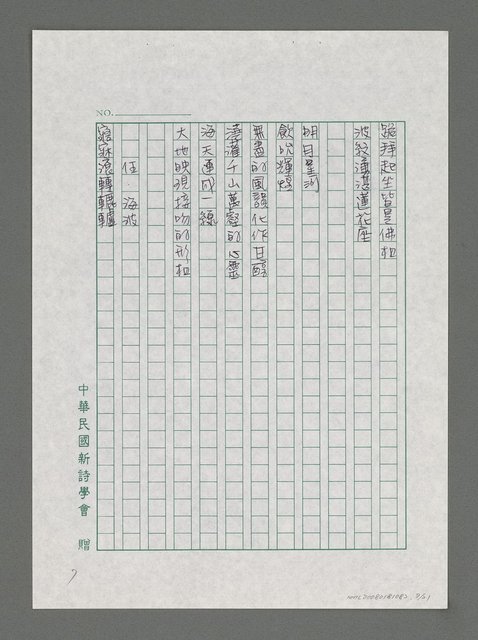 NO.
跪拜起坐皆是佛相
波紋湧漾蓮花座
明目星河
飲吮輝煌
無盡的風韻化作甘醇
澆灌千山萬壑的心靈
海天連成一線
大地映現接吻的形相
伍·海波
寤寐滾轉轆轤
中華民國新詩學會 贈
7